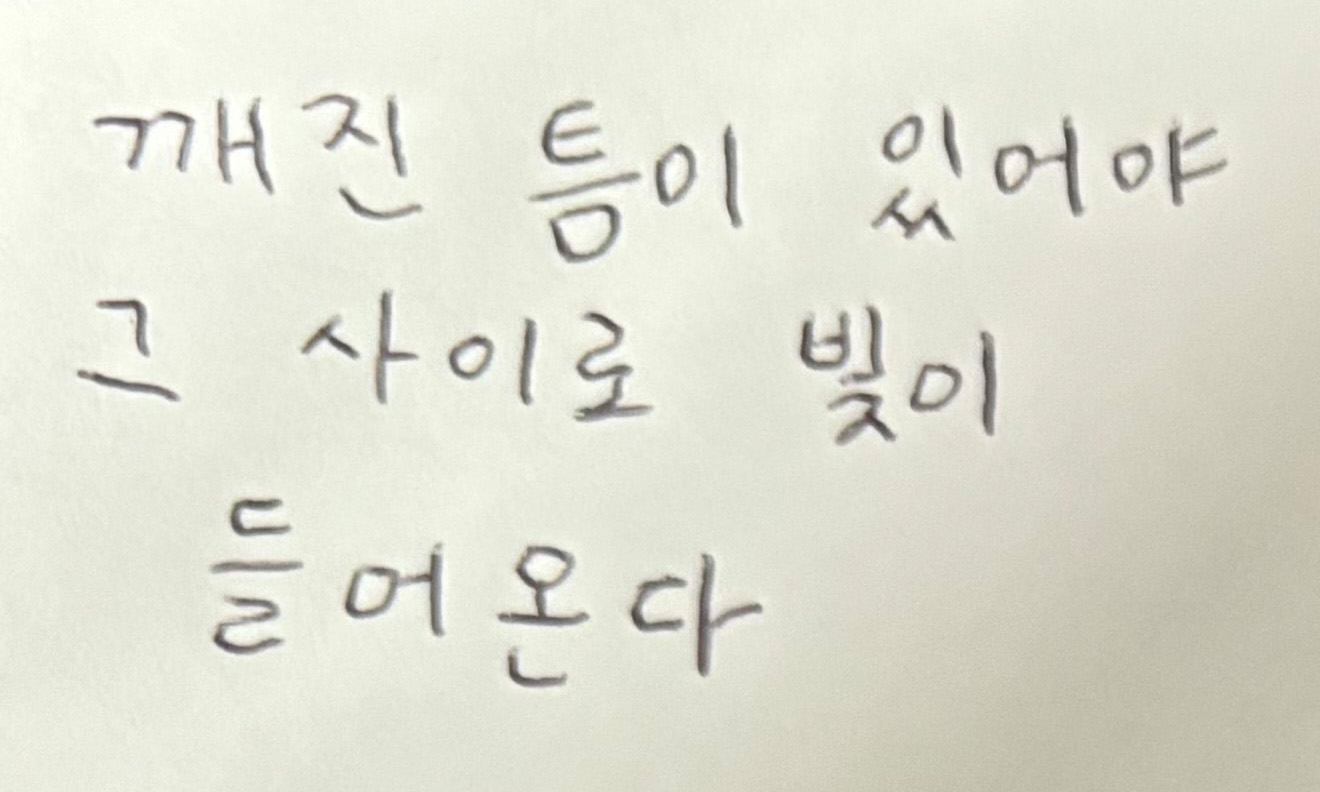 깨진 틈이 있어야
그 사이로 빛이
들어온다